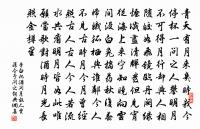 青天有月来幾時我今
停杯一問之人攀明月
不可得月行却與人相
隨皎如飛鏡臨丹闕緑
煙滅盡清輝發但見宵
從海上來寧知曉向雲
間没白兔搗藥秋復春
嫦娥孤棲與誰鄰今人
不見古時月今月曾經
照古人古人今人若流
水共看明月皆如此唯
願當歌對酒時月光長
照金樽裏
李白把酒問月故人賈
淳令予問之